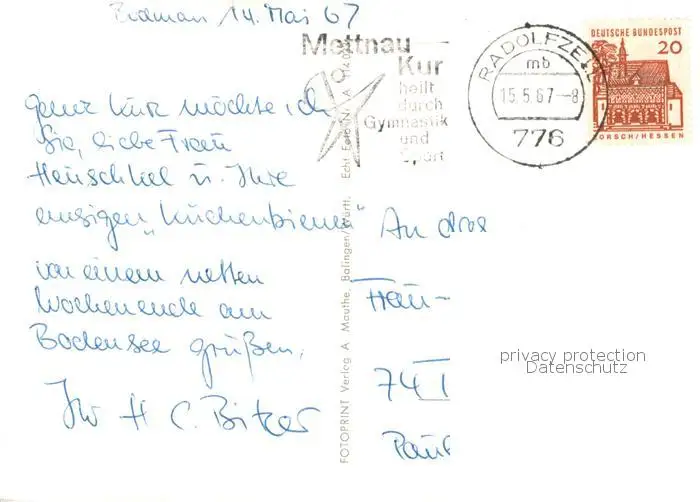 14. Mai 67
ganz kurz möchte ich
Sie, liebe Frau
Henschkel u. Ihre
emsigen „Küchenbienen“
von einem netten
Wochenende am
Bodensee grüßen.
Ihr H C. Bitzer
Mettnau
Kur
heilt
durch
Gymnastik
und
Sport
RADOLFZELL
mb
15.5.67--8
776
DEUTSCHE BUNDESPOST
20
LORSCH/HESSEN
FOTOPRINT Verlag A. Mauthe, Balingen/Württ. Echt Foto Nr. A
An das
74
privacy protection
Datenschutz